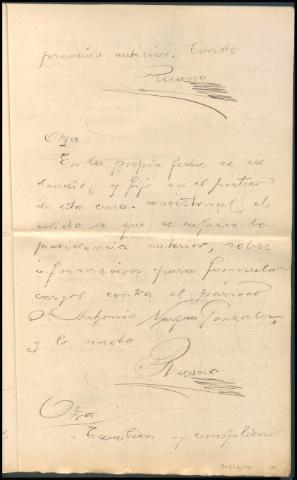 proveido anterior. Conste
Ruano
Otra
En la propia fecha se es
tendió y fijó en el portico
de esta casa consistorial el
edicto a que se refiere la
providencia anterior, sobre
informacion para formular
cargos contra el párroco
D Antonio Gonzalez
y lo anoto
Ruano
Otra
Tambien y cumplien